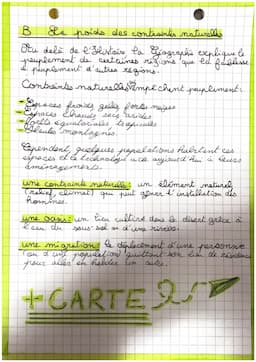 B Le poids des contraintes naturelles
Au delà de l'Histoire la Géographie explique le
peuplement de certaines régions que la faiblesse
de peuplement d'autres régions.
Contraintes naturelles empêchent peuplement:
- Espaces froids gelés fortes neiges
- Espaces chauds secs arides
- Forêts équatoriales tropicales
- Hautes montagnes.
Cependant, quelques populations habitent ces
espaces et la technologie a aujourd'hui à leurs
aménagements.
une contrainte naturelle: un élément naturel
(relief, climat) qui peut gêner l'installation des
hommes.
une oasis: un lieu cultivé dans le désert grâce à
l'eau du sous-sol ou d'une rivière.
une migration: le déplacement d'une personne
(ou d'une population) quittant son lieu de résidence
pour aller en habiter un autre.
+ CARTE